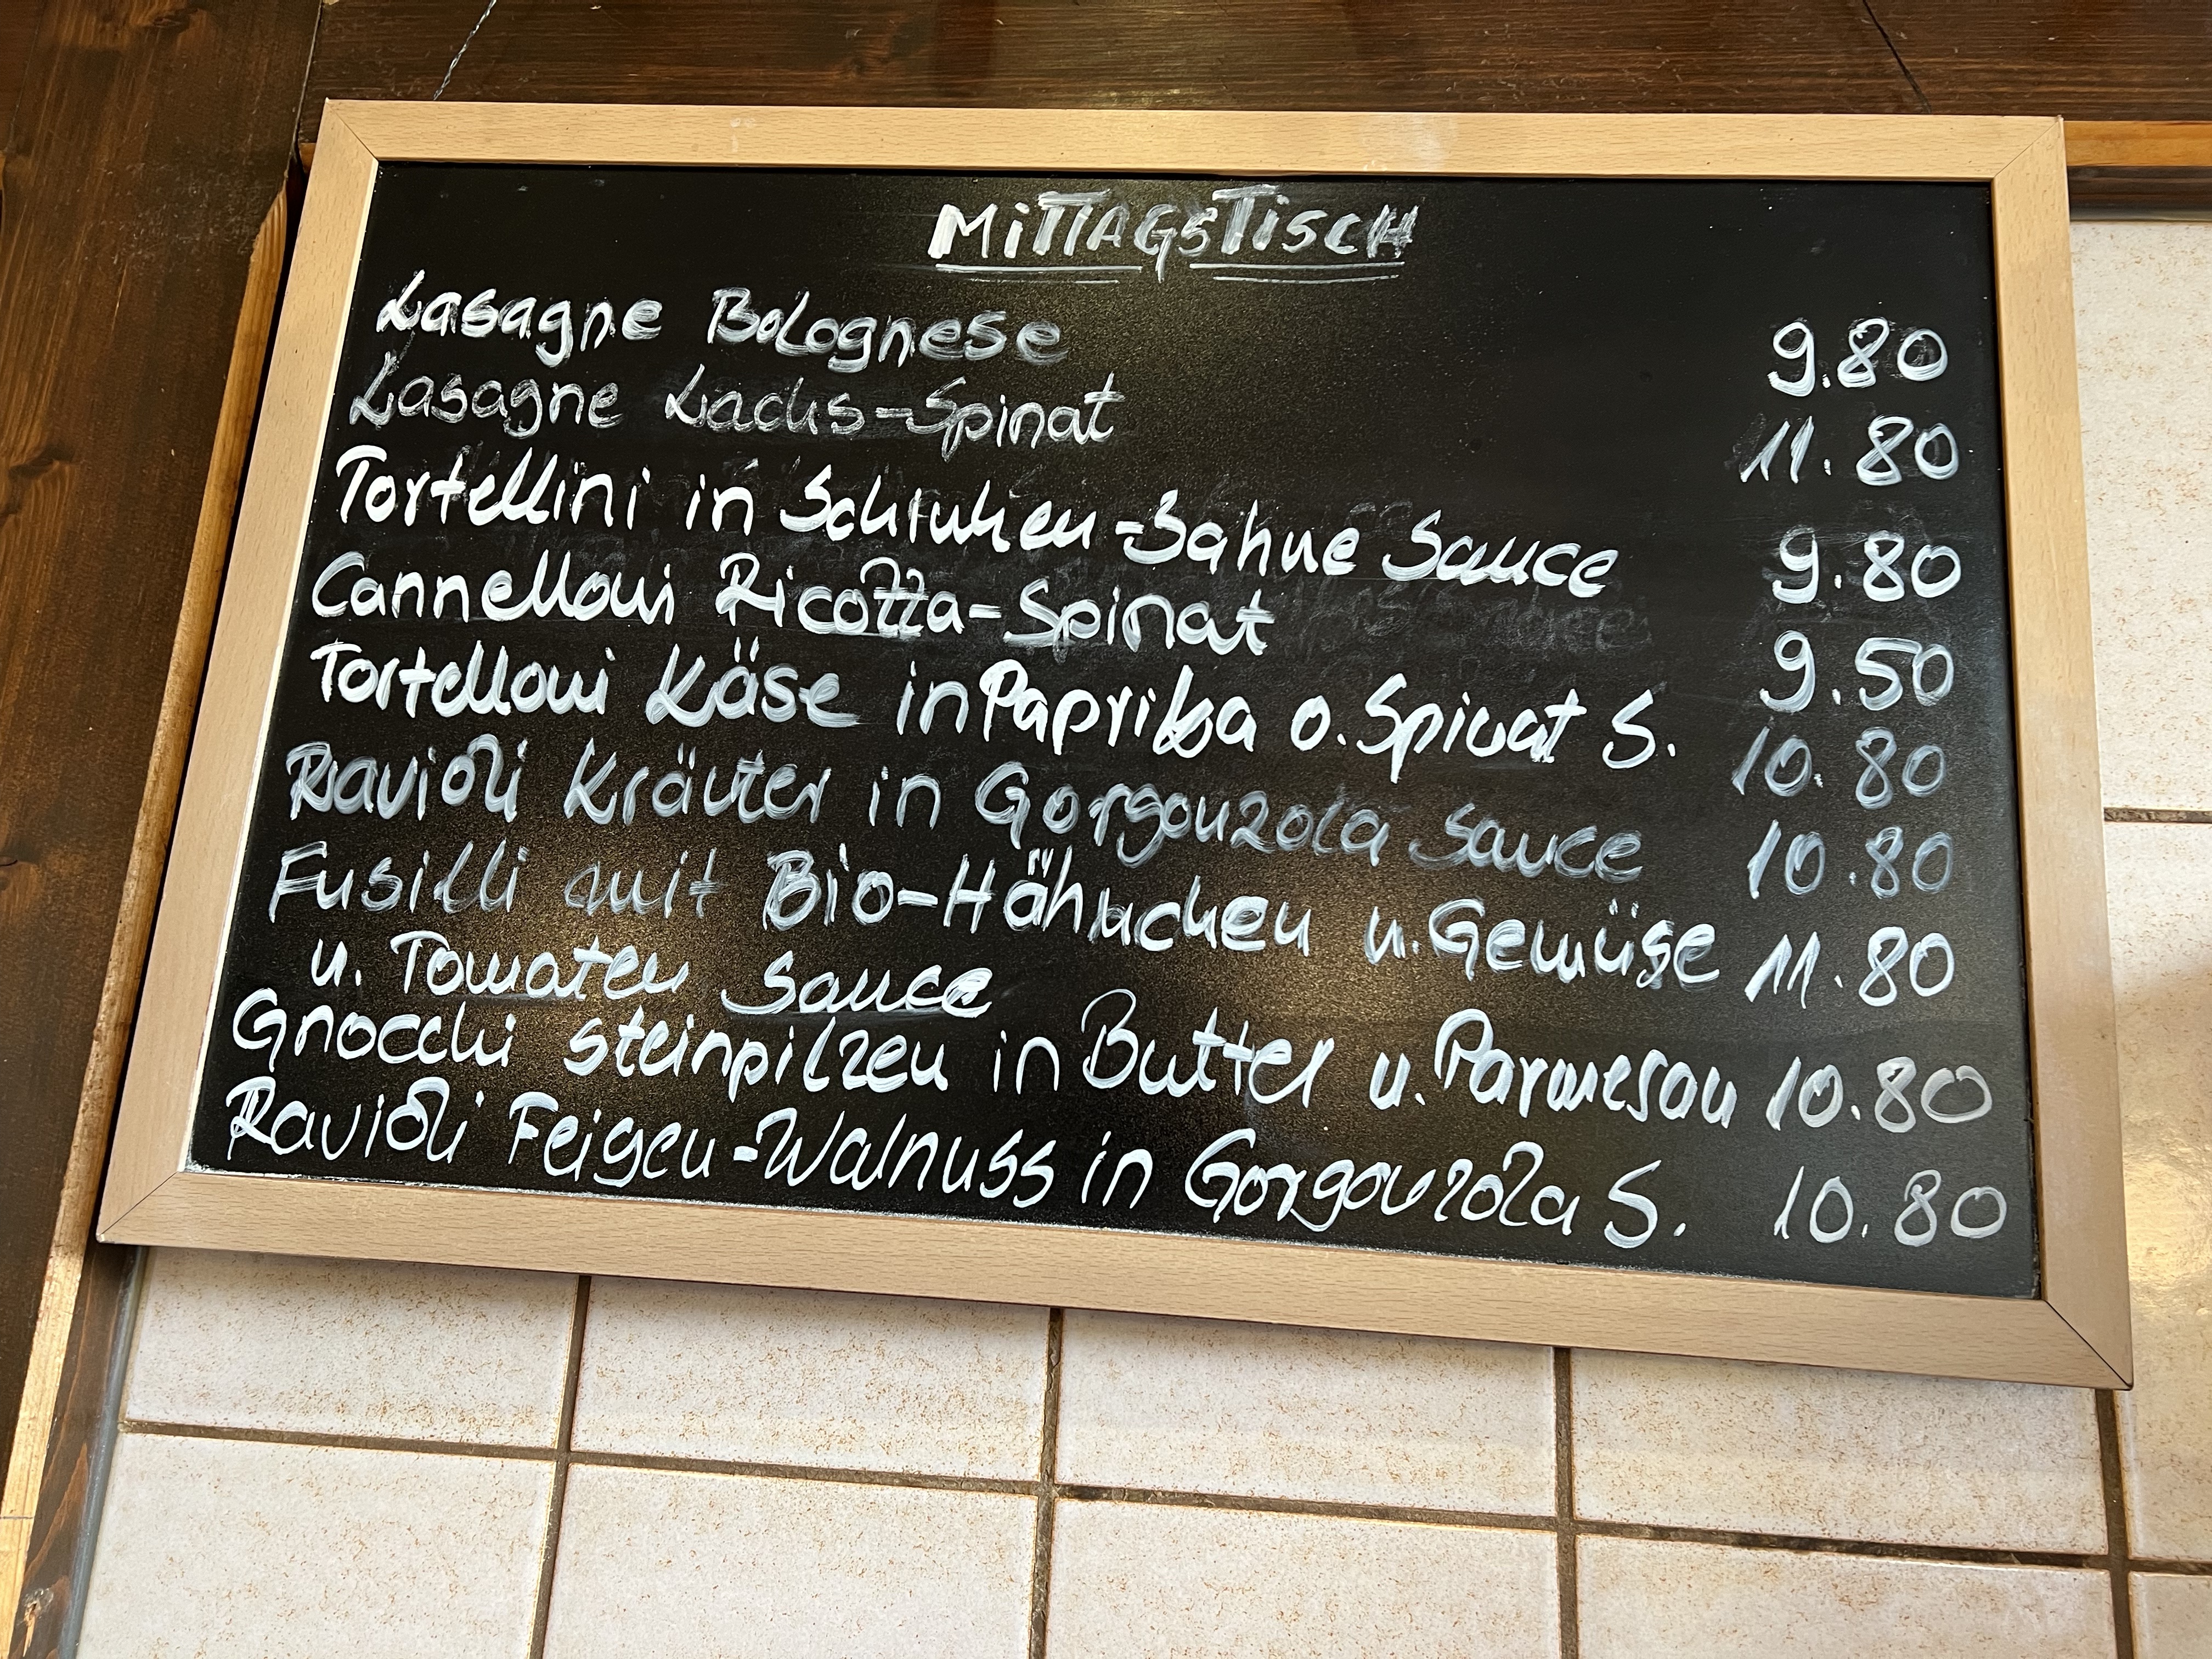 MITTAGSTISCH
Lasagne Bolognese 9.80
Lasagne Lachs-Spinat 11.80
Tortellini in Schinken-Sahne Sauce 9.80
Cannelloni Ricotta-Spinat 9.50
Tortelloni Käse in Paprika o. Spinat S. 10.80
Ravioli Kräuter in Gorgonzola Sauce 10.80
Fusilli mit Bio-Hähnchen u. Gemüse 11.80
u. Tomaten Sauce
Gnocchi Steinpilzen in Butter u. Parmesan 10.80
Ravioli Feigen-Walnuss in Gorgonzola S. 10.80